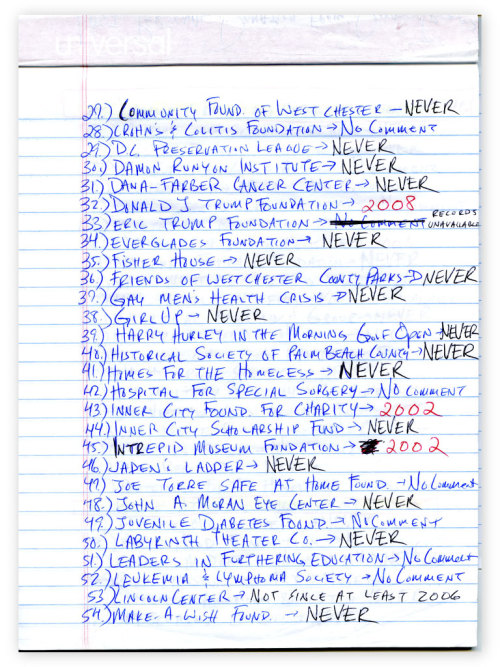 universal
27.) COMMUNITY FOUND. OF WESTCHESTER — NEVER
28.) CRIHN'S & COLITIS FOUNDATION → NO COMMENT
29.) DC PRESERVATION LEAGUE → NEVER
30.) DAMON RUNYON INSTITUTE → NEVER
31.) DANA-FARBER CANCER CENTER → NEVER
32.) DONALD J TRUMP FOUNDATION → 2008
33.) ERIC TRUMP FOUNDATION → NO COMMENT RECORDS UNAVAILABLE
34.) EVERGLADES FOUNDATION → NEVER
35.) FISHER HOUSE → NEVER
36.) FRIENDS OF WESTCHESTER COUNTY PARKS → NEVER
37.) GAY MEN'S HEALTH CRISIS → NEVER
38.) GIRL UP — NEVER
39.) HARRY HURLEY IN THE MORNING GOLF OPEN → NEVER
40.) HISTORICAL SOCIETY OF PALM BEACH COUNTY → NEVER
41.) HOMES FOR THE HOMELESS → NEVER
42.) HOSPITAL FOR SPECIAL SURGERY → NO COMMENT
43.) INNER CITY FOUND. FOR CHARITY → 2002
44.) INNER CITY SCHOLARSHIP FUND → NEVER
45.) INTREPID MUSEUM FONDATION → 2002
46.) JADEN'S LADDER → NEVER
47.) JOE TORRE SAFE AT HOME FOUND. → NO COMMENT
48.) JOHN A. MORAN EYE CENTER → NEVER
49.) JUVENILE DIABETES FOUND. → NO COMMENT
50.) LABYRINTH THEATER CO. → NEVER
51.) LEADERS IN FURTHERING EDUCATION → NO COMMENT
52.) LEUKEMIA & LYMPHOMA SOCIETY → NO COMMENT
53.) LINCOLN CENTER → NOT SINCE AT LEAST 2006
54.) MAKE-A-WISH FOUND. → NEVER